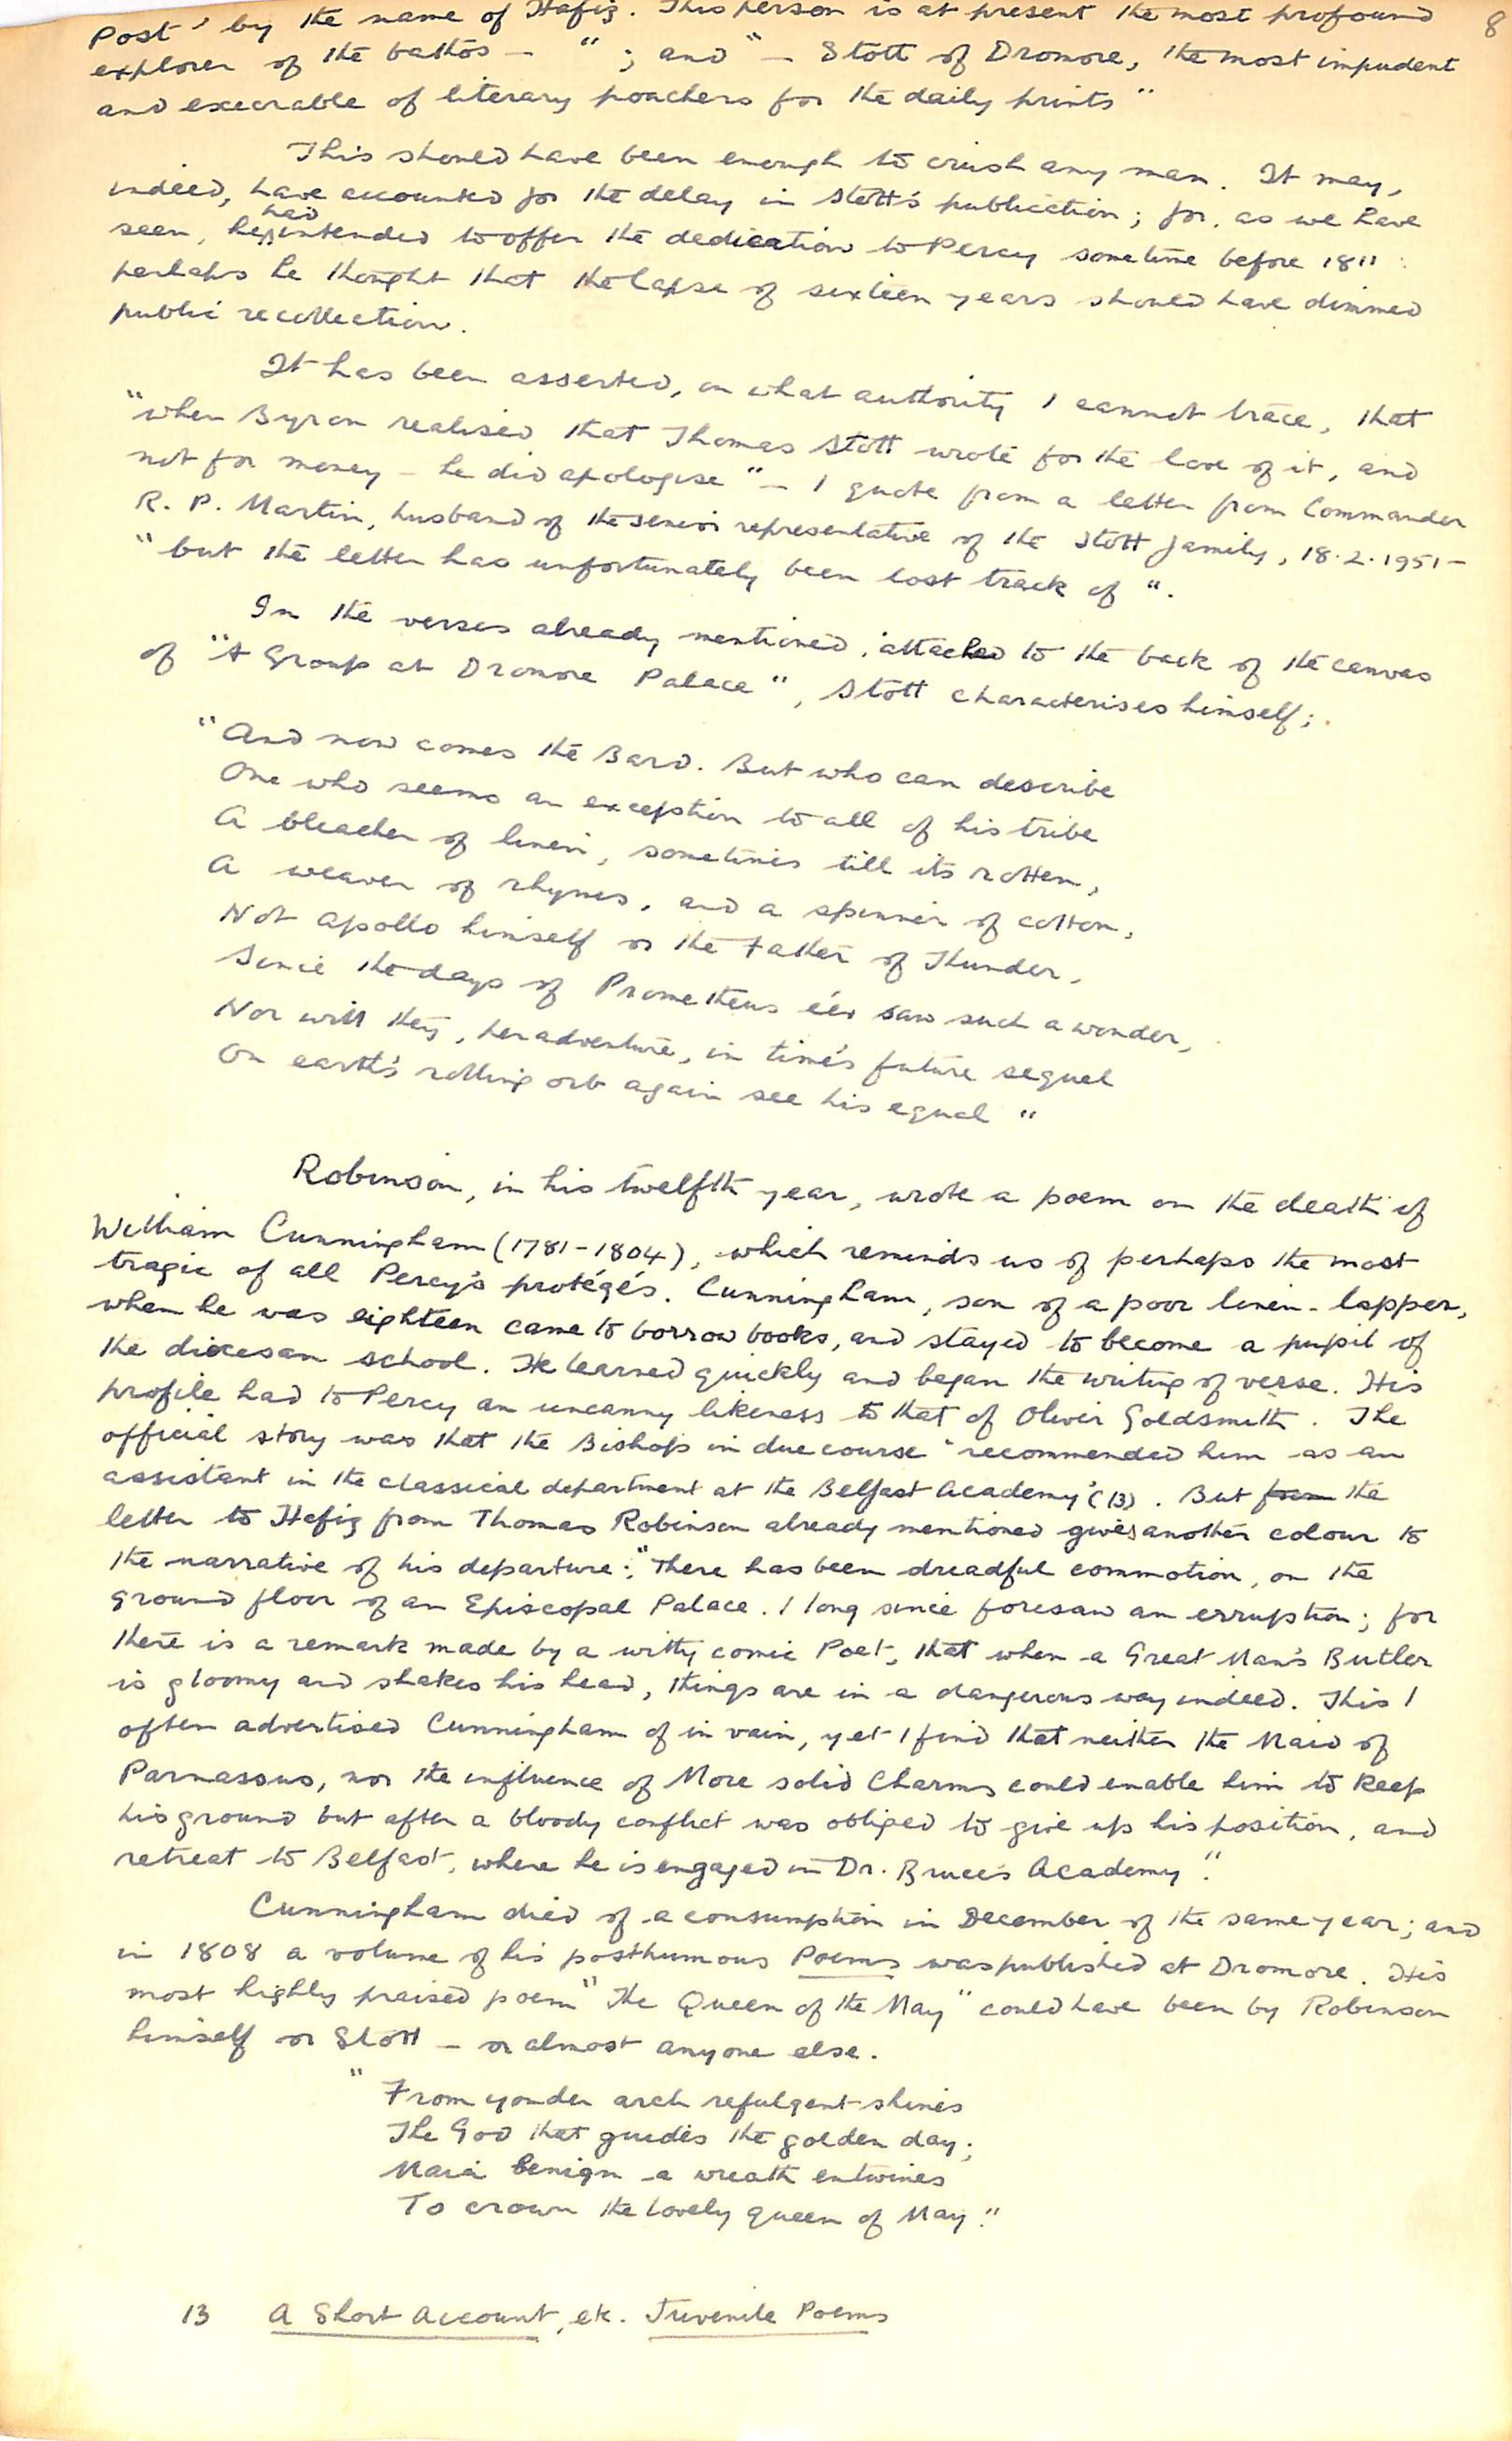 8
Post' by the name of Hafiz. This person is at present the most profound
explorer of the bathos – "; and "– Stott of Dromore, the most impudent
and execrable of literary poachers for the daily prints"
This should have been enough to crush any man. It may,
indeed, have accounted for the delay in Stott's publication; for, as we have
seen, he had intended to offer the dedication to Percy sometime before 1811:
perhaps he thought that the lapse of sixteen years should have dimmed
public recollection.
It has been asserted, on what authority I cannot trace, that
"when Byron realised that Thomas Stott wrote for the love of it, and
not for money – he did apologise" – I quote from a letter from Commander
R. P. Martin, husband of the senior representative of the Stott family, 18.2.1951 –
"but the letter has unfortunately been lost track of".
In the verses already mentioned, attached to the back of the canvas
of "A Group at Dromore Palace", Stott characterises himself;
"And now comes the Bard. But who can describe
One who seems an exception to all of his tribe
A bleacher of linen, sometimes till its rotten,
A weaver of rhymes, and a spinner of cotton,
Not Apollo himself or the Father of Thunder,
Since the days of Prometheus e'er saw such a wonder,
Nor will they, peradventure, in time's future sequel
On earth's rolling orb again see his equal"
Robinson, in his twelfth year, wrote a poem on the death of
William Cunningham (1781-1804), which reminds us of perhaps the most
tragic of all Percy's protégés. Cunningham, son of a poor linen-lapper,
when he was eighteen came to borrow books, and stayed to become a pupil of
the diocesan school. He learned quickly and began the writing of verse. His
profile had to Percy an uncanny likeness to that of Oliver Goldsmith. The
official story was that the Bishop in due course "recommended him as an
assistant in the classical department at the Belfast Academy" (13). But from the
letter to Hafiz from Thomas Robinson already mentioned gives another colour to
the narrative of his departure: "There has been dreadful commotion, on the
ground floor of an Episcopal Palace. I long since foresaw an erruption; for
there is a remark made by a witty comic Poet, that when a Great Man's Butler
is gloomy and shakes his head, things are in a dangerous way indeed. This I
often advertised Cunningham of in vain, yet I find that neither the Maid of
Parnassus, nor the influence of More solid Charms could enable him to keep
his ground but after a bloody conflict was obliged to give up his position, and
retreat to Belfast, where he is engaged in Dr. Bruce's Academy."
Cunningham died of a consumption in December of the same year; and
in 1808 a volume of his posthumous Poems was published at Dromore. His
most highly praised poem "The Queen of the May" could have been by Robinson
himself or Stott – or almost anyone else.
"From yonder arch refulgent shines
The God that guides the golden day;
Maia benign a wreath entwines
To crown the lovely queen of May."
13 A Short Account, etc. Juvenile Poems